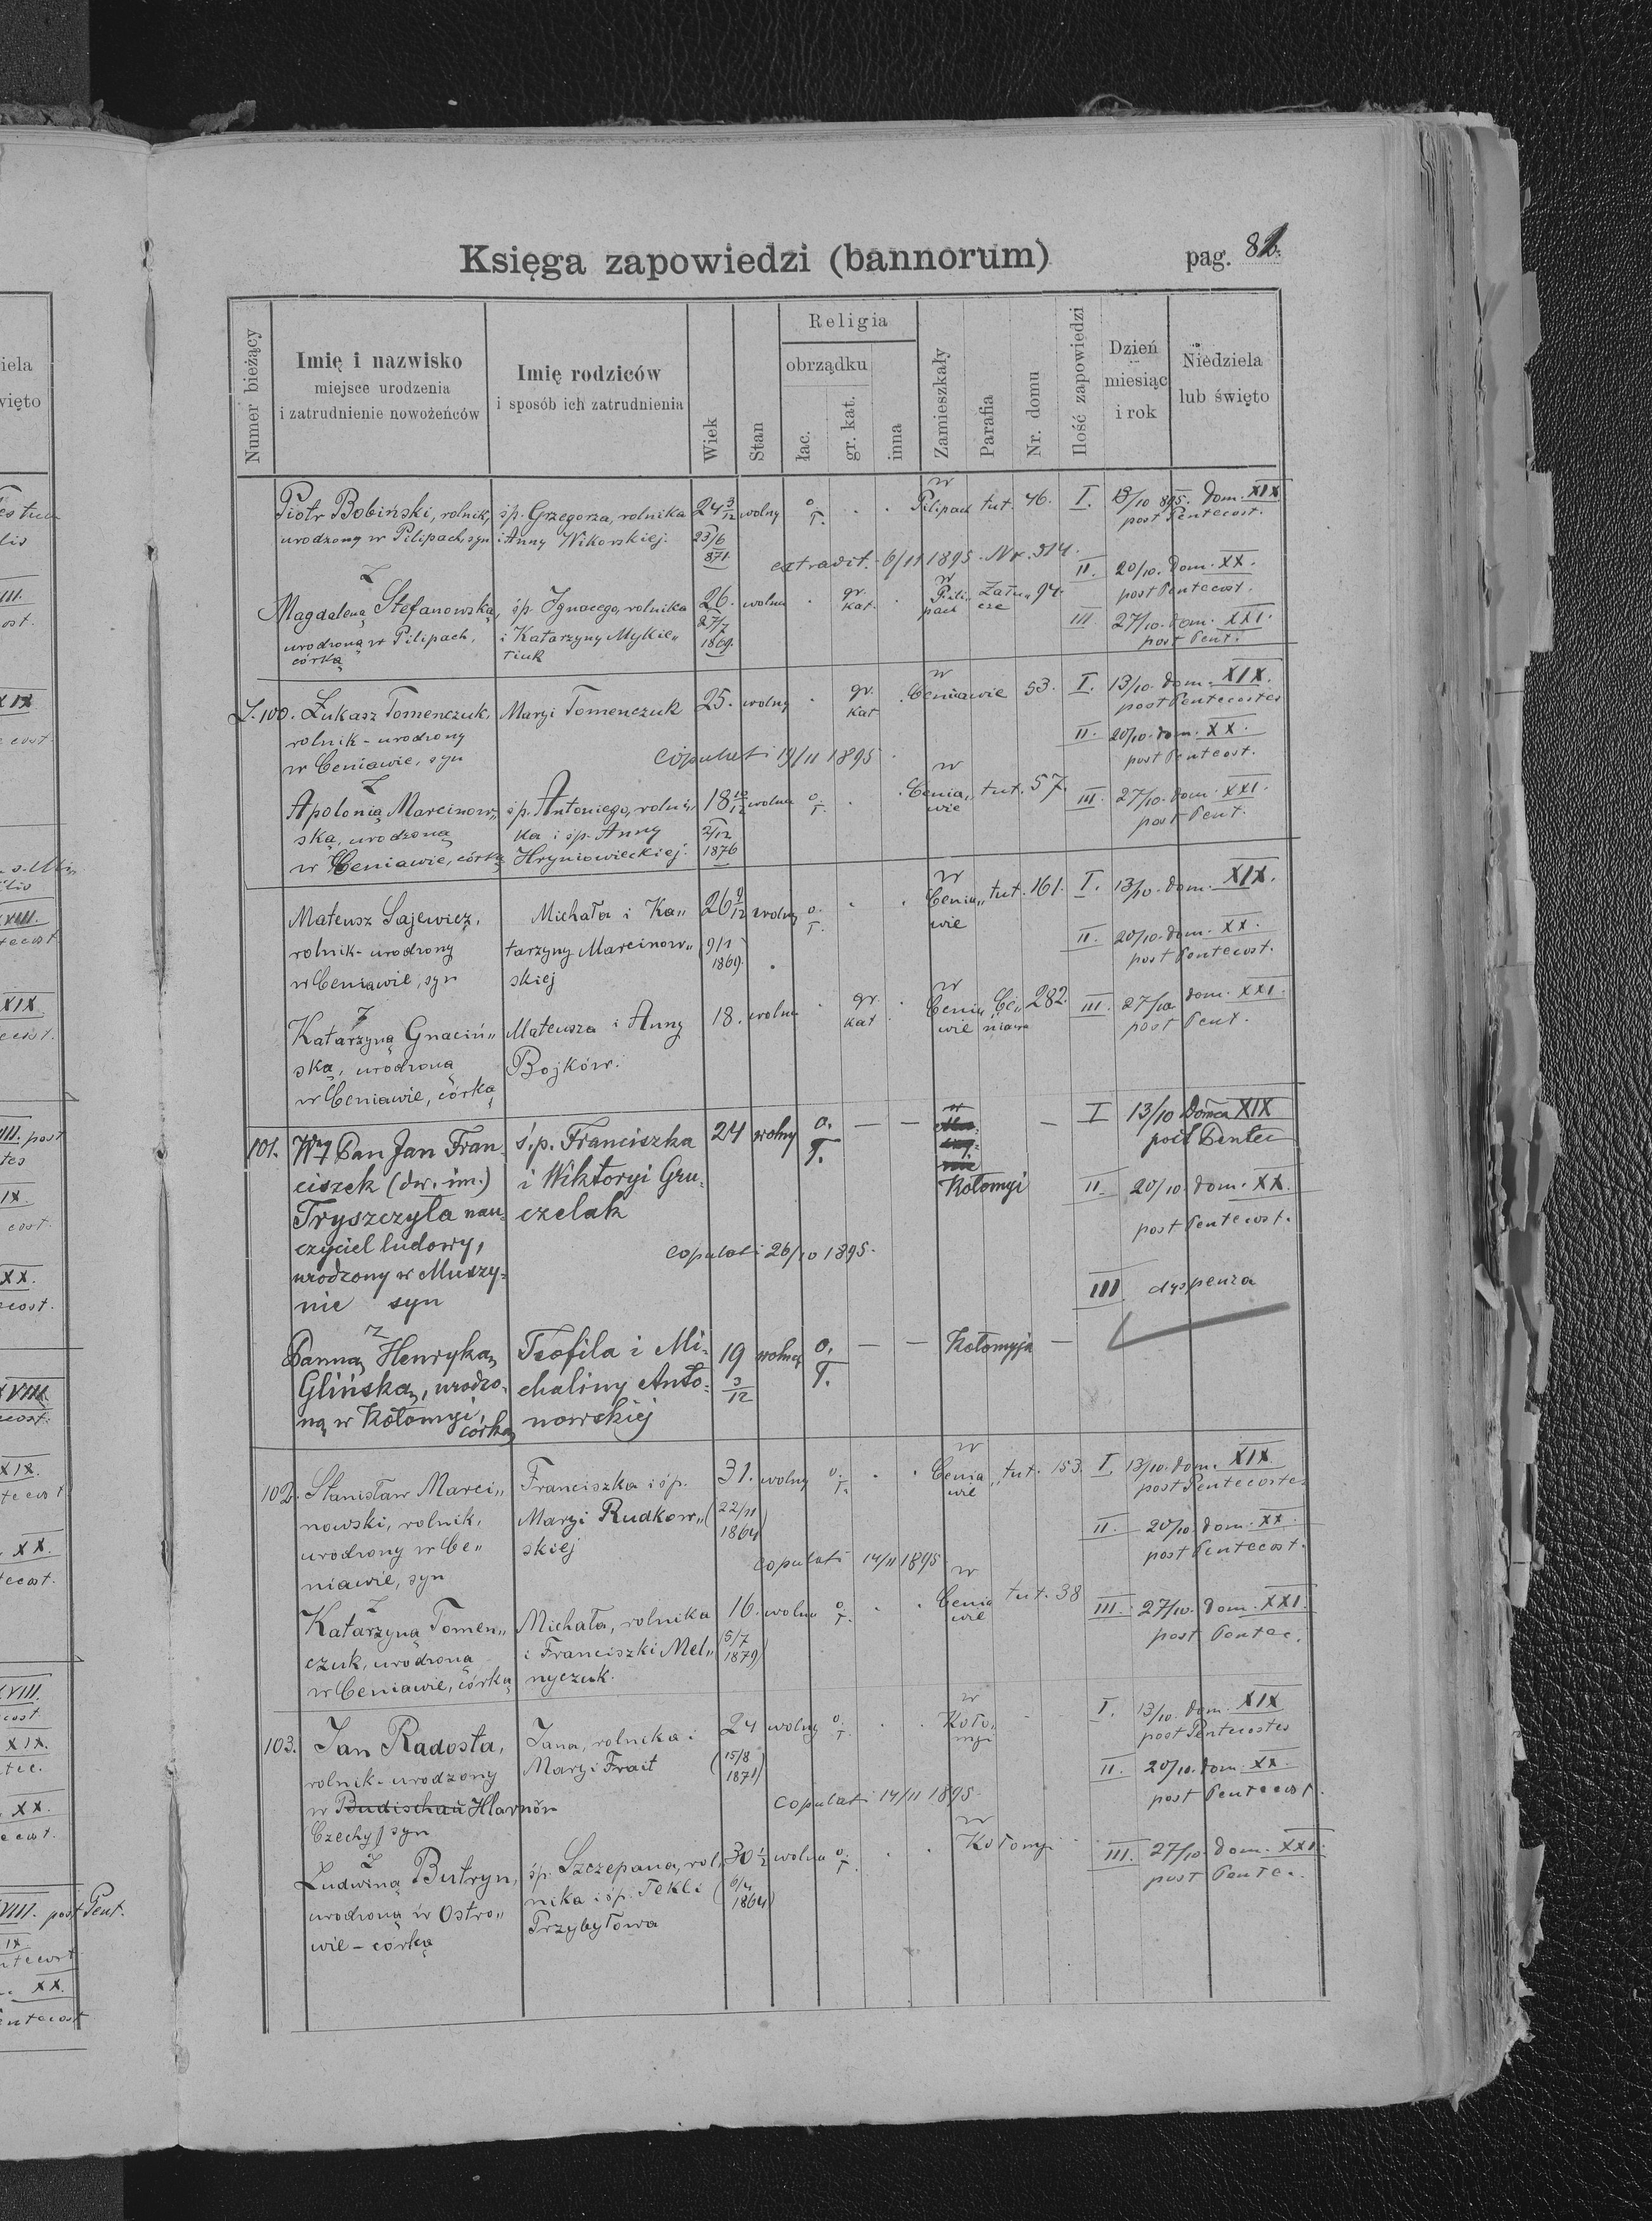 Księga zapowiedzi (bannorum)
pag. 81.
Numer bieżący
Imię i nazwisko
miejsce urodzenia
i zatrudnienie nowożeńców
Imię rodziców
i sposób ich zatrudnienia
Wiek
Stan
Religia
obrządku
łac.
gr. kat.
inna
Zamieszkały
Parafia
Nr. domu
Ilość zapowiedzi
Dzień
miesiąc
i rok
Niedziela
lub święto
Piotr Bobiński, rolnik, śp. Grzegorza, rolnika 24 3/12 wolny o. . . w Pilipach tut. 46. I. 13/10 895. Dom. XIX
urodzony w Pilipach, syn i Anny Wikorskiej. 23/6 r. post Pentecost.
871.
extradit. 6/11 1895. Nr. 314. II. 20/10. Dom. XX.
z post Pentecost.
Magdaleną Stefanowską, śp. Ignacego, rolnika 26. wolna . gr. kat. . w Pili„ pach Zału„ cze 94.
urodzoną w Pilipach, i Katarzyny Mykie„ 27/7 III. 27/10. Dom. XXI.
córką tiuk 1869. post Pent.
L. 100. Łukasz Tomenczuk, Maryi Tomenczuk 25. wolny . gr. kat . w Ceniawie 53. I. 13/10. Dom. XIX.
rolnik - urodzony post Pentecostes
w Ceniawie, syn II. 20/10. Dom. XX.
copulati 19/11 1895. post Pentecost.
z
Apolonią Marcinow„ śp. Antoniego, rolni„ 18 10/12 wolna o. r. . . w Cenia„ wie tut. 57. III. 27/10. Dom. XXI.
ska, urodzoną ka i śp. Anny 2/12 post Pent.
w Ceniawie, córką Hryniowieckiej. 1876
Mateusz Sajewicz, Michała i Ka„ 26 9/12 wolny o. r. . . w Cenia„ wie tut. 161. I. 13/10. Dom. XIX.
rolnik - urodzony tarzyny Marcinow„ 9/1 II. 20/10. Dom. XX.
w Ceniawie, syn skiej 1869. post Pentecost.
z
Katarzyną Gnaciń„ Mateusza i Anny 18. wolna . gr. kat . w Cenia„ wie Ce„ niawa 282. III. 27/10 Dom. XXI.
ską, urodzoną Bojków. post Pent.
w Ceniawie, córką
101. Wny Pan Jan Fran„ ś.p. Franciszka 24 wolny o. r. — — w — I 13/10 Domca XIX
ciszek (dw. im.) i Wiktoryi Gru„ Kołomyi post Pentec
Tryszczyla nau„ czelak II. 20/10. Dom. XX.
czyciel ludowy, post Pentecost.
urodzony w Muszy= copulati 26/10 1895.
nie syn III dyspenza
z
Panną Henryką Teofila i Mi= 19 wolna o. r. — — Kołomyja —
Glińską, urodzo„ chaliny Anto= 3/12
ną w Kołomyi, córką nowskiej
102. Stanisław Marci„ Franciszka i śp. 31. wolny o. r. . . w Cenia„ wie tut. 153. I. 13/10. Dom. XIX
nowski, rolnik, Maryi Rudkow„ (22/11 post Pentecostes
urodzony w Ce„ skiej 1864) II. 20/10. Dom. XX.
niawie, syn copulati 14/11 1895 post Pentecost.
z
Katarzyną Tomen„ Michała, rolnika 16. wolna o. r. . . w Cenia wie tut. 38 III. 27/10. Dom. XXI.
czuk, urodzoną i Franciszki Mel„ (5/7 post Pentec.
w Ceniawie, córką nyczuk. 1879)
103. Jan Radosta, Jana, rolnika i 24 wolny o. r. . . w Koło„ myi - - I. 13/10. Dom. XIX
rolnik - urodzony Maryi Frait (15/8 post Pentecostes
w Budischau Hlavnon 1871) II. 20/10. Dom. XX.
Czechy) syn copulati 14/11 1895. post Pentecost.
z
Ludwiną Butryn, śp. Szczepana, rol„ 30 1/2 wolna o. r. . . w Kołomyi III. 27/10. Dom. XXI.
urodzoną w Ostro„ nika i śp. Tekli (6/4 post Pentec.
wie - córką Przybyłowa 1864)